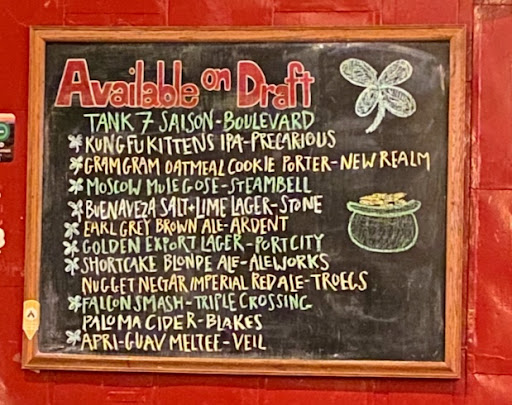 Available on Draft
TANK 7 SAISON-BOULEVARD
KUNG FU KITTENS IPA-PRECARIOUS
GRAM GRAM OATMEAL COOKIE PORTER-NEW REALM
MOSCOW MULE GOSE-STEAMBELL
BUENAVEZA SALT+LIME LAGER-STONE
EARL GREY BROWN ALE-ARDENT
GOLDEN EXPORT LAGER-PORT CITY
SHORTCAKE BLONDE ALE-ALEWORKS
NUGGET NECTAR IMPERIAL RED ALE-TROEGS
FALCON SMASH-TRIPLE CROSSING
PALOMA CIDER-BLAKES
APRI-GUAV MELTEE-VEIL